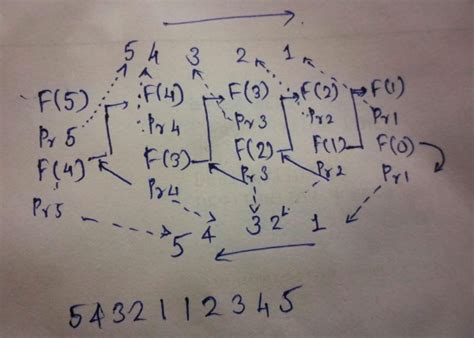 5 4 3 2 1
F(5) F(4) F(3) F(2) F(1)
Pr5 Pr4 Pr3 Pr2 Pr1
F(4) F(3) F(2) F(1) F(0)
Pr5 Pr4 Pr3 Pr2 Pr1
5 4 3 2 1
5432112345